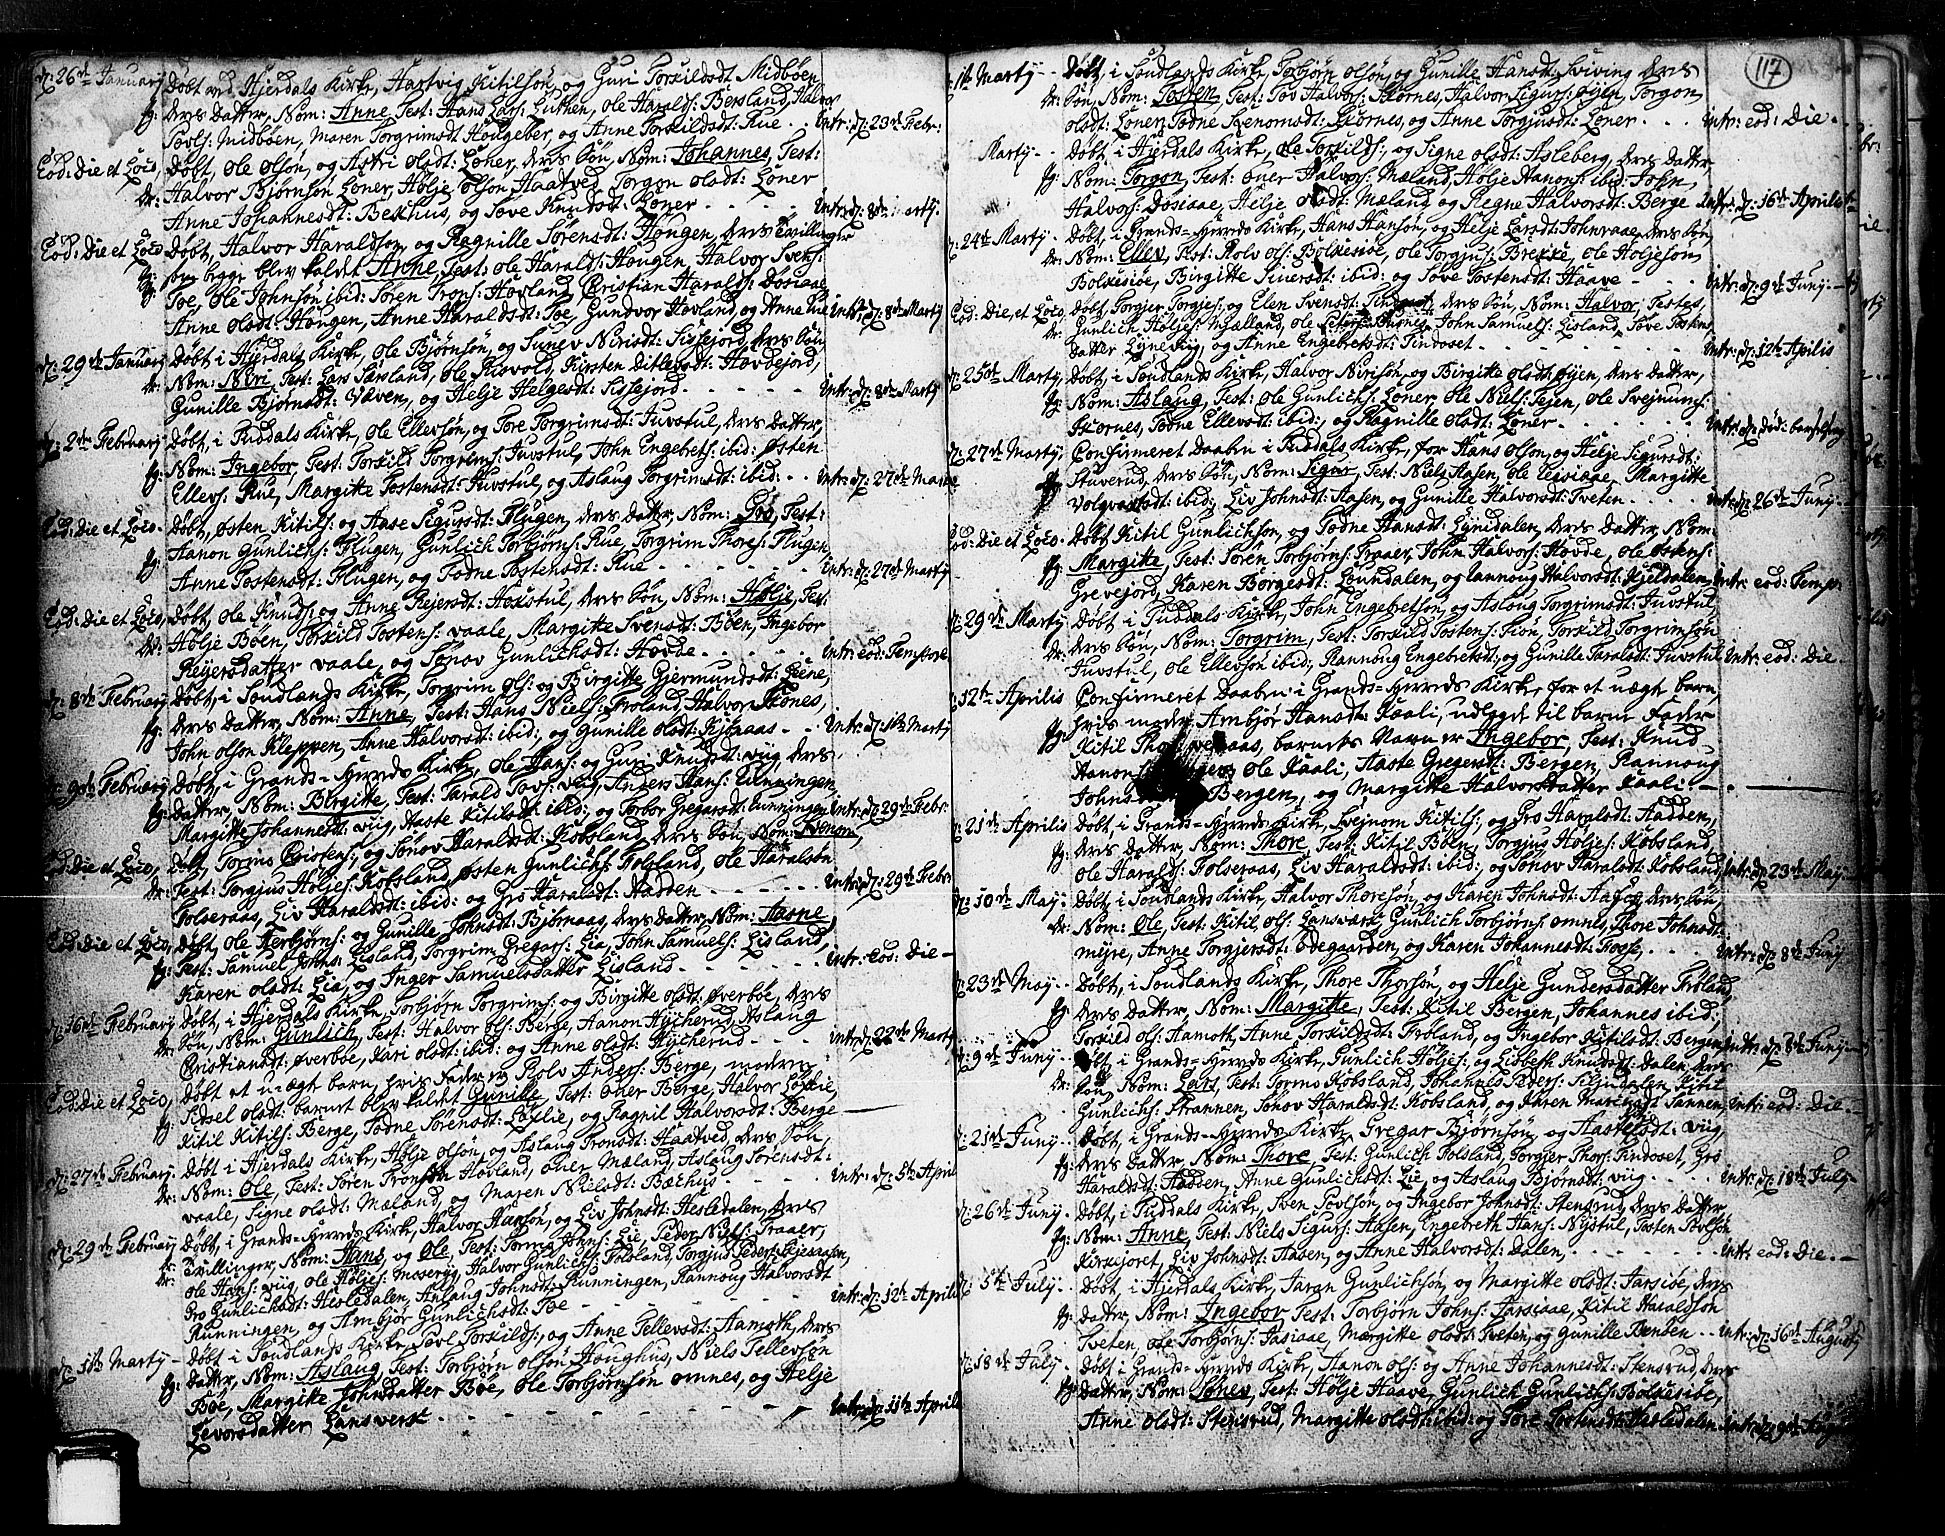 d: 26de January Døbt ved Hjerdals Kirke, Hartvig Kitilsøn, og Guri Torkildsdt: Midbøen,
fg: deres Datter, Nom: Anne, Test: Hans Luthen, Ole Haralds: Bersland, Halvor
Povls: Midbøen, Maren Torgrimsdt: Hougeber, og Anne Torkildsdt: Rue. Intr: d: 23de Febr:
Eod: Die et Loco, Døbt, Ole Olsøn, og Astri Olsdt: Løner, deres Søn, Nom: Johannes, Test:
dr: Halvor Bjørnsøn Løner, Hølje Olsøn Haatved, Torgon Olsdt: Løner
Anne Johannesdt: Bekhus, og Tove Knudsdt: Løner Intr: d: 8de Martij.
Eod: Die et Loco Døbt, Halvor Haraldsøn, og Ragnille Sørensdt: Hougen, deres Tvillinger
fg: som begge blev kaldet Anne, Test: Ole Haralds: Hougen, Halvor Svens:
fg: Toe, Ole Johnsøn ibid: Søren Trons: Hovland, Christian Haralds: Dosiaae,
Anne Olsdt: Hougen, Anne Haraldsdt: Toe, Gundvor Hovland, og Anne Rue Intr: d: 8de Martij
d: 29de January Døbt i Hjerdals Kirke, Ole Bjørnsøn, og Sunev Nirisdt: Sisjejord, deres Søn
dr: Nom: Niri, Test: Lars Særsland, Ole Kisvold, Kirsten Ditlevsdt: Hovdejord,
Gunille Bjørnsdt: Væven, og Helje Helgesdt: Sisjejord Intr: d: 8de Martij
d: 2de February Døbt, i Tuddals Kirke, Ole Ellevsøn, og Tore Torgrimsdt: Juvstul, deres Datter,
fg: Nom: Ingebor, Test: Torkild Torgrims: Juvstul, John Engebrets: ibid: Østen
Ellevs: Rue, Margitte Tostensdt: Juvstul, og Aslaug Torgrimsdt: ibid: Intr: d: 27de Martij
Eod: Die et Loco. Døbt, Østen Kitils: og Aase Sigursdt: Flugen, deres Datter, Nom: Gro, Test:
fg: Aanon Gunlichs: Flugen, Gunlich Torbjørns: Rue, Torgrim Thores: Flugen
Anne Tostensdt: Flugen, og Todne Tostensdt: Rue Intr: d: 27de Martij
Eod: Die et Loco, Døbt, Ole Knuds: og Anne Rejersdt: Hoxstul, deres Søn, Nom: Hølje, Test:
dr: Hølje Bøen, Torkild Tostens: Vaale, Margitte Svensdt: Bøen, Ingebor
Rejersdatter Vaale, og Sønov Gunlichsdt: Hovde Intr: eod: Tempore
d: 8de February Døbt, i Sondlands Kirke, Torgrim Ols: og Birgitte Gjermundsdt: Liene,
fg: deres Datter, Nom: Anne, Test: Hans Niels: Froland, Halvor Skones,
John Olsøn Kleppen, Anne Halvorsdt: ibid: og Gunille Olsdt: Intr: d: 1ste Martij
d: 9de February Døbt, i Grands-Herreds Kirke, Ole Hans: og Guri Knudsdt: Viig, deres
fg: Datter, Nom: Birgitte, Test: Tarald Tovs: Viig, Anders Hans: Runningen,
Margitte Johannesdt: Viig, Haste Kitilsdt: ibid: og Torbor Gregarsdt: Runningen Intr: d: 29de Febr:
Eod: Die et Loco, Døbt, Tormo Evistens: og Sønov Haraldsdt: Kobsland, deres Søn, Nom: Svenom,
dr: Test: Torgjus Høljes: Kobsland, Østen Gunlichs: Folsland, Ole Haralsøn
Folseraas, Liv Haraldsdt: ibid: og Gro Haraldsdt: Hadden Intr: d: 29de Febr:
Eod: Die et Loco, Døbt, Ole Herbjørns: og Gunille Johnsdt: Bjørnaas, deres Datter, Nom: Aasne,
fg: Test: Samuel Johns: Lisland, Torgrim Gregars: Lia, John Samuels: Lisland,
Karen Olsdt: Lia, og Inger Samuelsdatter Lisland Intr: Eod: Die
d: 16de February Døbt, i Hjerdals Kirke, Torbjørn Torgrims: og Birgitte Olsdt: Øverbøe, deres
dr: Søn, Nom: Gunlich, Test: Halvor Ols: Berge, Aanon Hycherud, Aslaug
Christiansdt: Øverbøe, Kari Olsdt: ibid: og Anne Olsdt: Hycherud Intr: d: 22de Martij
Eod: Die et Loco, Døbt et uægt barn, hvis Fader er Rolv Anders: Berge, moderen
fg: Sidsel Olsdt: barnet blev kaldet Gunille, Test: Oner Berge, Halvor Løylie,
Kitil Kitils: Berge, Todne Sørensdt: Løylie, og Ragnil Halvorsdt: Berge
d: 27de February. Døbt i Hjerdals Kirke, Hølje Olsøn, og Aslaug Tronsdt: Haatved, deres Søn,
dr: Nom: Ole, Test: Søren Tronsøn Hovland, Oner Mæland, Aslaug Sørensdt:
Vaale, Signe Olsdt: Mæland, og Maren Nielsdt: Bæchus Intr: d: 5te April
d: 29de February Døbt, i Grands-Herreds Kirke, Halvor Hansøn, og Liv Johnsdt: Hesledalen, deres
dr: Tvillinger, Nom: Hans, og Ole, Test: Tormo Johns: Lie, Peder Niels: Traaer,
dr: Ole Hans: Viig, Ole Høljes: Moserøy, Halvor Gunlichs: Folsland, Torgjus Peders:
Gro Gunlichsdt: Hesledalen, Aslaug Johnsdt: Runningen, Rannoug Halvorsdt
Runningen, og Ambjør Gunlichsdt: Toe Intr: d: 12te Aprilis
d: 1ste Martij Døbt i Sondlands Kirke, Povl Torkilds: og Anne Tellevsdt: Aamoth, deres
fg: Datter, Nom: Aslaug, Test: Torbjørn Olsøn Houghus, Niels Tellevsøn
Bøe, Margitte Johnsdatter Bøe, Ole Torbjørnsøn Omnes, og Helje
Levorsdatter Lansverk Intr: d: 11te Aprilis
117
d: 1ste Martij Døbt, i Sondlands Kirke, Torbjørn Olsøn, og Gunille Hansdt: Sviving deres
dr: Søn, Nom: Tosten, Test: Tov Halvors: Skornes, Halvor Sigurs: Øyen, Torgon
Olsdt: Løner, Todne Svenomsdt: Skornes, og Anne Torgjusdt: Løner Intr: eod: Die
Martij Døbt, i Hjerdals Kirke, Ole Torkilds:, og Signe Olsdt: Asleberg, deres Datter,
fg: Nom: Torgon, Test: Oner Halvors: Mæland, Hølje Aanons: ibid: John
Halvors: Dosiaae, Helje Olsdt: Mæland og Regne Halvorsdt: Berge Intr: d: 16de Aprilis
d: 24de Martij Døbt, i Grands-Herreds Kirke, Hans Hansøn, og Helje Larsdt: Johnraae, deres Søn,
dr: Nom: Ellev, Test: Rolv Ols: Bolkesiøe, Ole Torgjus: Brekke, Ole Høljesøn
Bolkesiøe, Birgitte Siversdt: ibid: og Tove Tostensdt: Haave Intr: d: 9de Junij
Eod: Die, et Loco, Døbt, Torgjer Torgjes: og Elen Svensdt: Tindoset, deres Søn, Nom: Halvor, Testes,
dr: Gunlich Høljes: Mælland, Ole John Samuels: Lisland, Tove Tostens
Datter Lynevig, og Anne Engebretsdt: Tindoset Intr: d: 12te Aprilis
d: 25de Martij, Døbt, i Sondlands Kirke, Halvor Nirisøn, og Birgitte Olsdt: Øyen, deres Datter,
fg: Nom: Aslaug, Test: Ole Gunlichs: Løner, Ole Niels: Øyen, Ole Svejnums:
Skornes, Todne Ellevsdt: ibid:, og Ragnille Olsdt: Løner Intr: d: Død: barselseng
d: 27de Martij Confirmeret Daaben i Tuddals Kirke, for Hans Olsøn, og Helje Sigursdt:
Stuverud, deres Søn, Nom: Signe, Test: Niels Aasen, Ole Margitte
Volgvarsdt: ibid:, Liv Johnsdt: Aasen, og Gunille Halvorsdt: Tveten Intr: d: 26de Junij
Eod: Die et Loco. Døbt Kitil Gunlichsøn, og Todne Hansdt: Lynedalen, deres Datter, Nom:
fg: Margitte, Test: Søren Torbjørns: Traaer, John Halvors: Hovde, Ole Østens:
Grevejord, Karen Børgesdt: Loundalen, og Rannoug Halvorsdt: Kjeldalen Intr: eod: Temp:
d: 29de Martij Døbt i Tuddals Kirke, John Engebretsøn, og Aslaug Torgrimsdt: Juvstul,
dr: deres Søn, Nom: Torgrim, Test: Torkild Tostens: Sion, Torkild Torgrimsøn
Juvstul, Ole Ellevsøn ibid:, Rannoug Engebretsdt:, og Gunille Taralsdt: Juvstul Intr: eod: Die
d: 12te Aprilis Confirmeret Daaben i Grands-Herreds Kirke, for et uægte barn,
fg: hvis moder, Ambjør Hansdt: Kaali, udlagde til barne Fader
Kitil barnets Navn er Ingebor, Test: Knud
Aanon Ole Kaali, Haste Gregersdt: Bergen, Rannoug
Johns Bergen, og Margitte Halvorsdatter Kaali
d: 21de Aprilis Døbt, i Grands-Herreds Kirke, Svejnom Kitils:, og Gro Haraldsdt: Hadden,
fg: deres Datter, Nom: Thore, Test: Kitil Bøen, Torgjus Høljes: Kobsland,
Ole Haralds: Folseraas, Liv Haraldsdt: ibid:, og Sønov Haraldsdt: Kobsland Intr: d: 23de Maij
d: 10de Maij Døbt, i Sondlands Kirke, Halvor Thoresøn, og Karen Johnsdt: deres Søn,
dr: Nom: Ole, Test: Kitil Ols: Lansværk Gunlich Torbjørns: Omnes, Thore Johnsdt:
Anne Torgjersdt: Ødegaarden, og Karen Johannesdt: Fosse Intr: d: 8de Junij
d: 23de Maij Døbt, i Sondlands Kirke, Thore Thorsøn, og Helje Gundersdatter Froland,
fg: deres Datter, Nom: Margitte, Test: Kitil Bergen, Johannes ibid:
Torkild Ols: Aamoth, Anne Torkildsdt: Froland, og Ingebor Kitilsdt: Bergen Intr: d: 8de Junij
d: 9de Junij Døbt, i Grands-Herreds Kirke, Gunlich Høljes: og Lisbeth Knudsdt: Dalen, deres
dr: Søn, Nom: Lars, Test: Tormo Kobsland, Johannes Peders: Siljudalen, Kitil
Gunlichs: Strannen, Sønov Haraldsdt: Kobsland, og Karen Sannen, Intr: eod: Die
d: 21de Junij Døbt, i Grands-Herreds Kirke, Gregar Bjørnsøn, og Haste Viig,
fg: deres Datter, Nom: Thore, Test: Gunlich Folsland, Torgjer Thors: Tindoset, Gro
Haraldsdt: Hadden, Anne Gunlichsdt: Lie, og Aslaug Bjørnsdt: Viig Intr: d: 18de July
d: 26de Junij Døbt, i Tuddals Kirke, Sven Povlsøn, og Ingebor Johnsdt: Stensrud, deres Datter,
fg: Nom: Anne, Test: Niels Sigurs: Aasen, Engebreth Hans: Nystul, Tosten Povlsøn
Kirkejoret, Liv Johnsdt: Aasen, og Anne Halvorsdt: Dalen Intr: eod: Die
d: 5te July Døbt, i Hjerdals Kirke, Taron Gunlichsøn, og Margitte Olsdt: Jarsiøe, deres
fg: Datter, Nom: Ingebor, Test: Torbjørn Johns: Jarsiaae, Kitil Haraldsøn
Tveten, Ole Torbjørns: Jasiaae, Margitte Olsdt: Tveten, og Gunille Bensøen Intr: d: 16de Augustij
d: 18de July Døbt, i Grands-Herreds Kirke, Aanon Ols: og Anne Johannesdt: Stensrud, deres
fg: Datter, Nom: Sønev, Test: Hølje Haave, Gunlich Gunlichs: Bolkesiøe,
Anne Olsdt: Stensrud, Margitte Olsdt: ibid: og Tore Tostensdt: Hesledalen Intr: d: 9de Aug